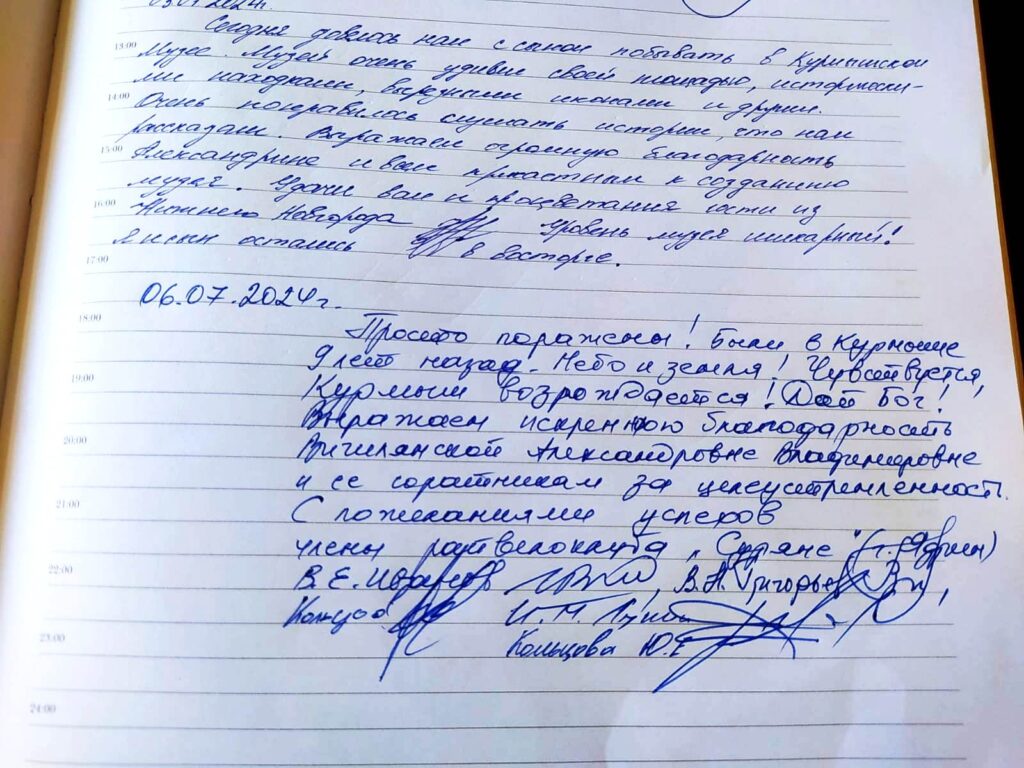 03.07.2024г.
Сегодня довелось нам с сыном побывать в Курмышском
13:00
Музее. Музей очень удивил своей площадью, историчиски-
ми находками, вырезными иконами и другим.
14:00
Очень понравилось слушать истории, что нам
рассказали. Выражаем огромную благодарность
15:00
Александрине и всем причастным к созданию
музея. Удачи вам и процветания гости из
16:00
Нижнего Новгорода Уровень музея шикарный!
Я и сын остались в восторге.
17:00
06.07.2024г.
18:00
Просто поражены! Были в Курмыше
9 лет назад. Небо и земля! Чувствуется,
19:00
Курмыш возрождается! Дай Бог!
Выражаем искреннюю благодарность
20:00
Александровне Владимировне
и ее соратникам за целеустремленность.
21:00
С пожеланиями успехов
члены велоклуба „Сударяне" (г. Ядрин)
22:00
В. Е. Иванов, В. А. Григорьев,
И. М.
23:00
Кольцова Ю.Е
24:00